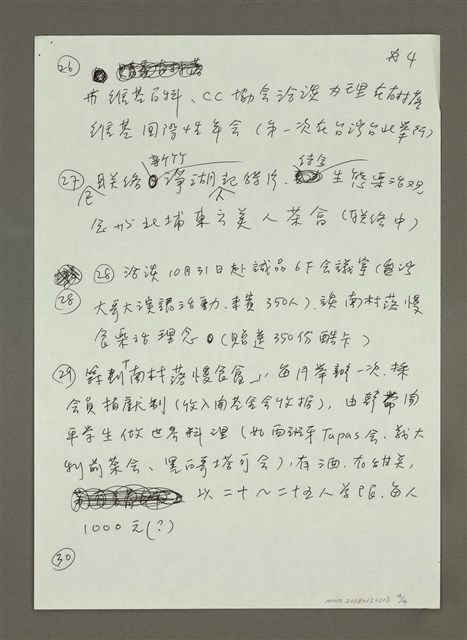 *4
26
與維基百科、CC協會洽談力理在南村落
維基國際性年會(第一次在台灣台北舉辦)
新竹 結合
27 聯絡淨湖記錄片、生態樂活觀
念
北埔東方美人茶會(聯絡中)
28 洽談10月31日赴誠品6F會議室(台灣
28 大哥大演講活動、來賓350人)、談南村落慢
食樂活理念(贈送350份酷卡)
29 籌劃「南村落慢食會」,每月舉辦一次、採
會員捐獻制(收入開基金會收據),由韓 開
平學生做世界料理(如西班牙Tapas會、義大
利前菜會、黑 會),有酒、有甜美,
以二十~二十五人為限、每人
1000元(?)
30